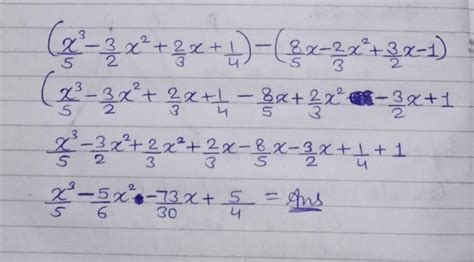 (x³/5 - 3/2 x² + 2/3 x + 1/4) - (8/5 x - 2/3 x² + 3/2 x - 1)
(x³/5 - 3/2 x² + 2/3 x + 1/4 - 8/5 x + 2/3 x² - 3/2 x + 1
x³/5 - 3/2 x² + 2/3 x² + 2/3 x - 8/5 x - 3/2 x + 1/4 + 1
x³/5 - 5/6 x² - 73/30 x + 5/4 = Ans